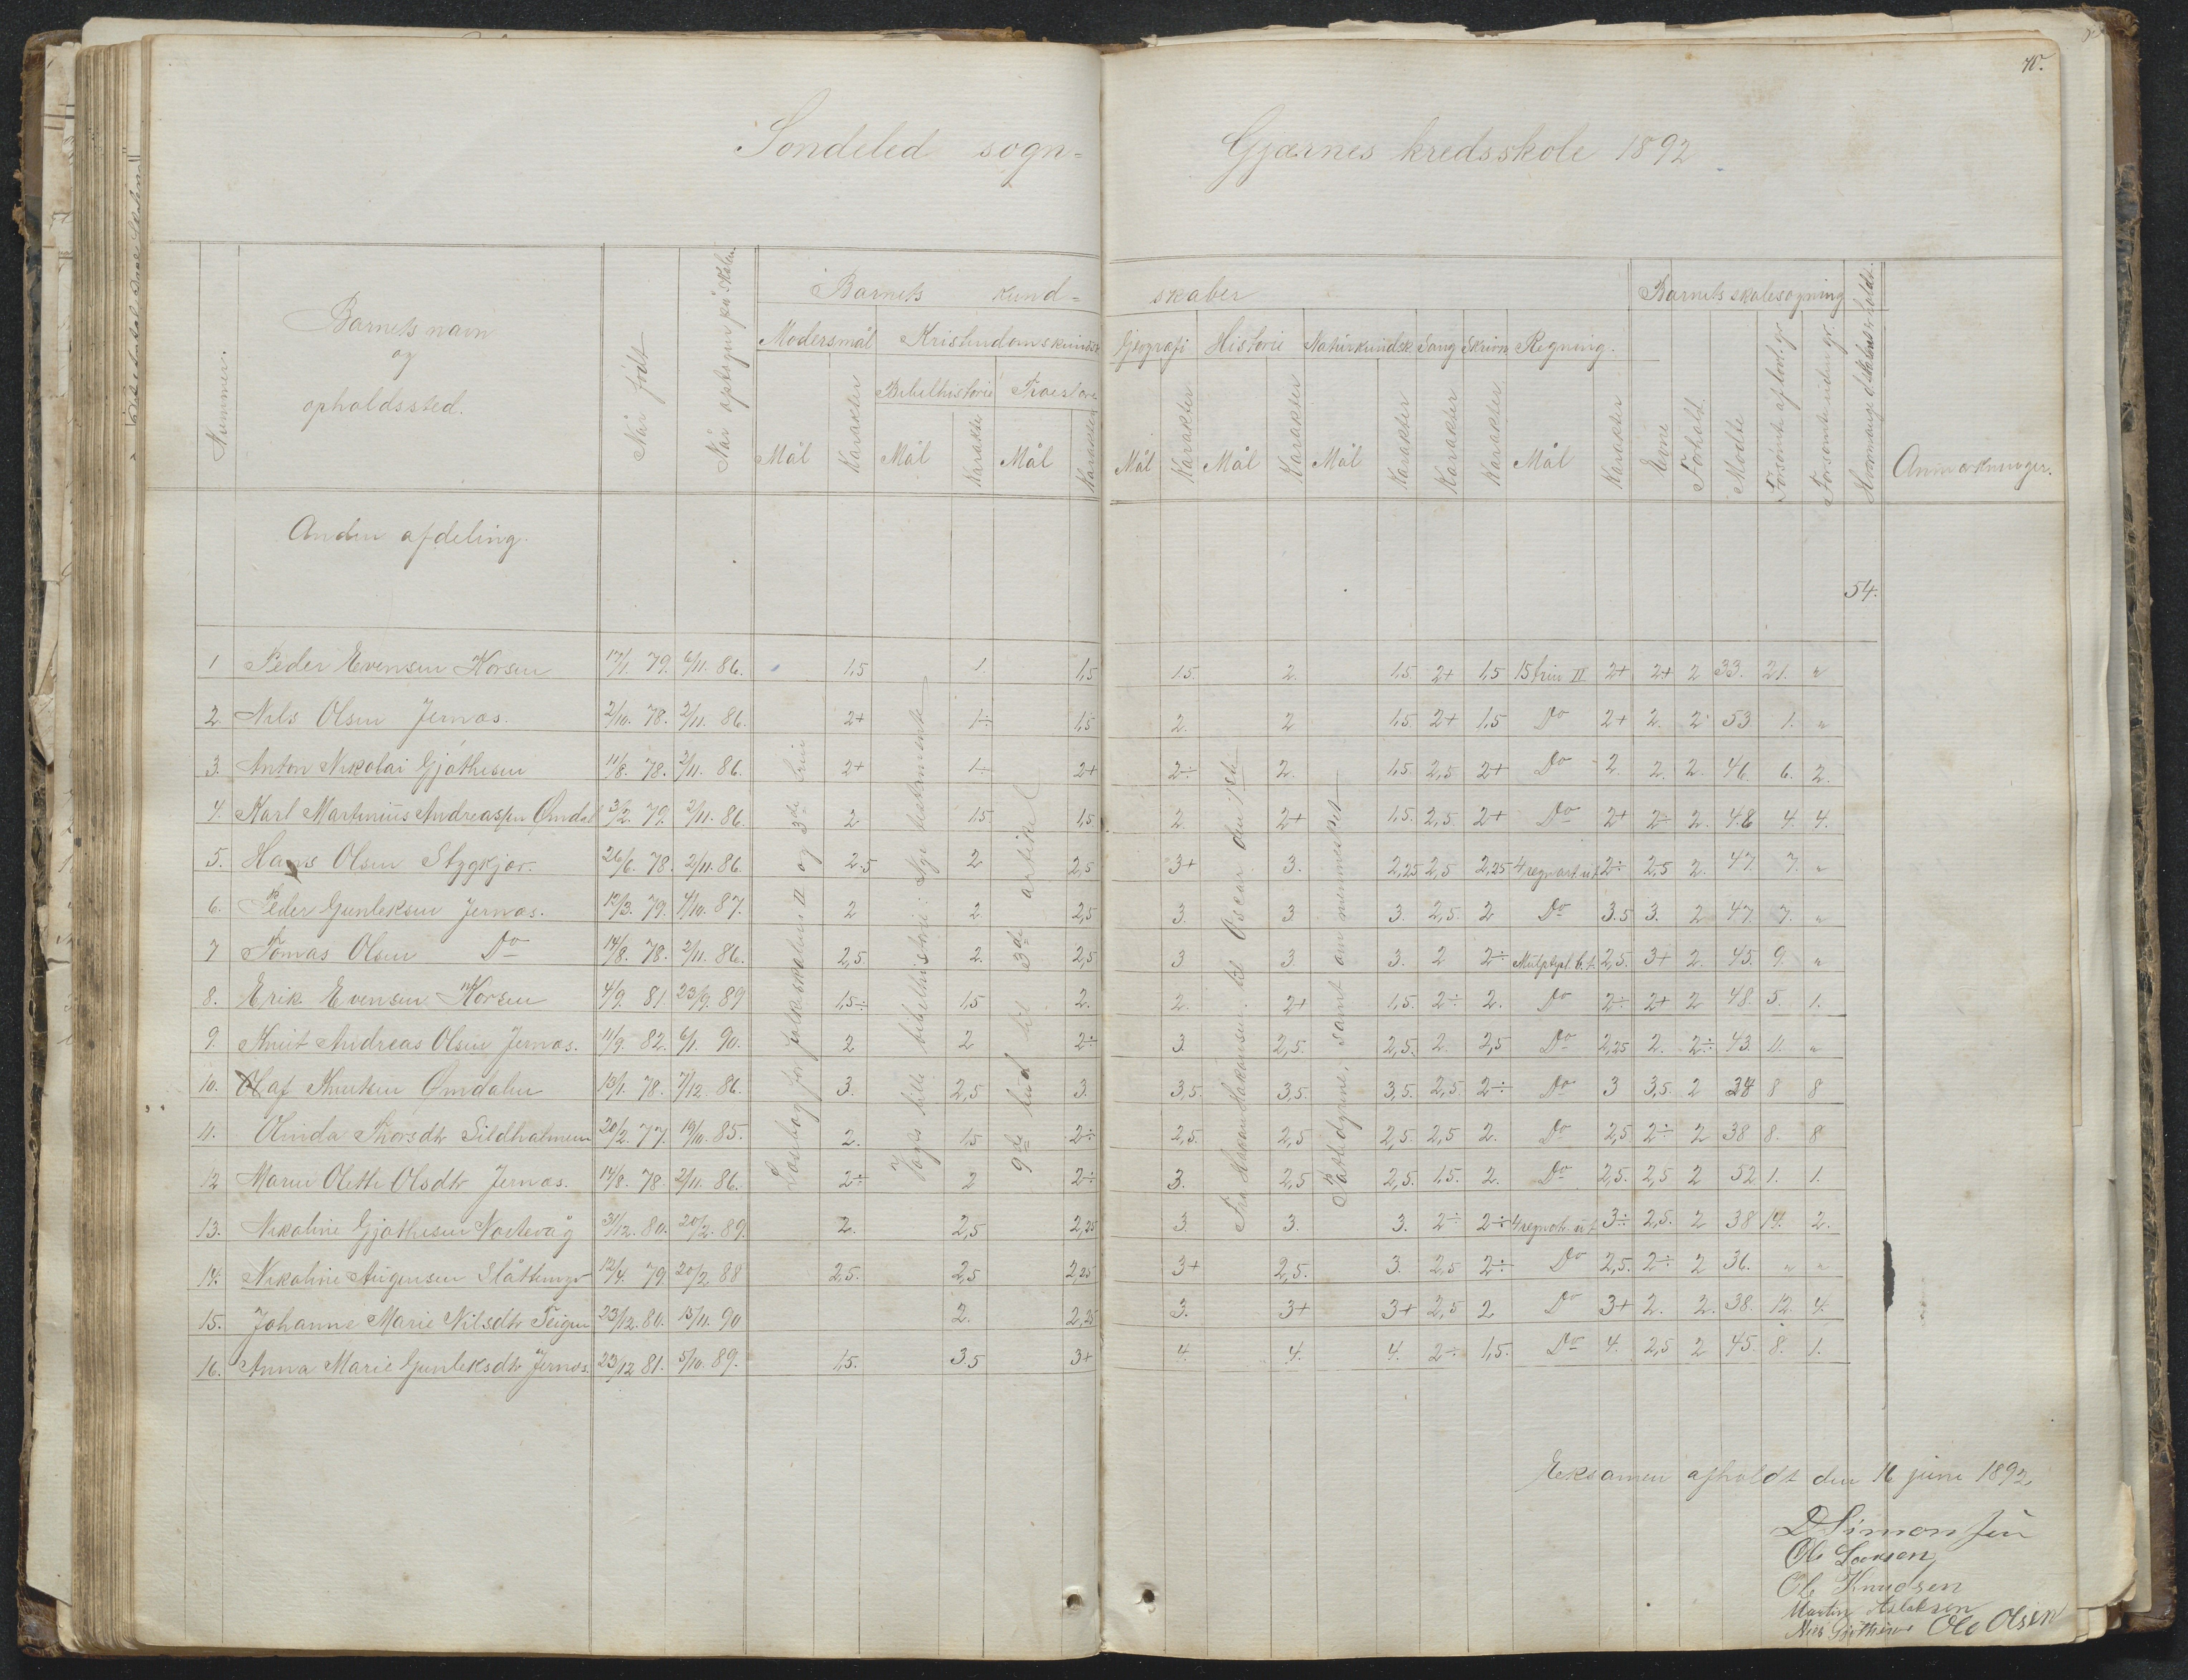 Søndeled sogn= Gjærnes kredsskole 1892
Nummer.
Barnets navn
og
opholdssted.
Når født
Når optagen på skolen
Barnets kund= skaber
Modersmål Kristendomskundsk
Bibelhistorie Troeslære
Mål Karakter Mål Karakter Mål Karakter
Geografi Historie Naturkundsk. Sang Skrivn Regning.
Mål Karakter Mål Karakter Mål Karakter Karakter Karakter Mål Karakter
Barnets skolesøgning
Evne Forhold Mødte Forsømte af lovl. gr. Forsømte uden gr.
Anmærkninger.
Anden afdeling.
54.
Læsebog for folkskolen II og 3de trin
Vogts lille bibelhistorie: Nye testamente
9de bud til 3die artikel
Fra Hakon Hakonsøn til Oscar den 1ste
Pattedyrene, samt om mennesket
1 Peder Evensen Korsen 17/1. 79. 6/11. 86. 1,5 1. 1,5 1,5. 2. 1,5. 2+ 1,5 15 trin II 2+ 2+ 2 33. 21. "
2. Nils Olsen Jernæs. 2/10. 78. 2/11. 86. 2+ 1÷ 1,5 2. 2 1,5. 2+ 1,5 Do 2+ 2. 2 53 1. "
3. Anton Nikolai Gjøthesen 11/8. 78. 2/11. 86. 2+ 1÷ 2+ 2÷ 2. 1,5. 2,5 2+ Do 2. 2. 2. 46. 6. 2.
4. Karl Martinius Andreassen Ømdal 3/2. 79. 2/11. 86. 2 1,5 1,5 2. 2+ 1,5. 2,5. 2+ Do 2+ 2÷ 2. 48 4. 4.
5. Hans Olsen Styggkjær. 26/6. 78. 2/11. 86. 2.5 2 2,5 3+ 3. 2,25 2,5 2,25 4 regnart. u.t. 2÷ 2,5 2. 47. 7. "
6. Peder Gunleksen Jernæs. 12/3. 79. 4/10. 87. 2 2. 2,5 3. 3 3. 2,5. 2 Do 3.5 3. 2 47. 7. "
7 Tomas Olsen Do 14/8. 78. 2/11. 86. 2,5. 2. 2,5 3 3 3. 2 2÷ Multpl. b.t. 2,5. 3+ 2. 45. 9. "
8. Erik Evensen Korsen 4/9. 81 23/9. 89 1,5÷ 1,5 2. 2. 2+ 1,5. 2÷ 2. Do 2÷ 2+ 2 48. 5. 1.
9. Knut Andreas Olsen Jernæs. 11/9. 82. 6/1. 90. 2 2 2÷ 3. 2,5. 2,5. 2. 2,5 Do 2,25 2. 2÷ 43. 11. "
10. Olaf Knutsen Ømdalen 13/1. 78. 7/12. 86. 3. 2,5 3. 3,5. 3,5. 3,5. 2,5. 2÷ Do 3 3,5. 2 38 8 8
11. Olinda Thorsdtr Sildholmen 20/2. 77. 19/10. 85. 2. 1,5 2÷ 2,5. 2,5 2,5. 2,5 2. Do 2,5 2÷ 2 38 8. 8
12 Maren Olette Olsdtr Jernæs. 14/8. 78. 2/11. 86. 2÷ 2 2÷ 3. 2,5 2,5. 1,5. 2. Do 2,5. 2,5 2 52 1. 1.
13. Nikoline Gjøthesen Næstevåg 31/12. 80. 20/2. 89. 2. 2,5 2,25 3. 3. 3. 2÷ 2÷ 4 regnart. u.t. 3÷ 2,5. 2 38 14. 2.
14. Nikoline Augensen Slåttemyr 12/4. 79 20/2. 88 2,5. 2,5 2,25 3+ 2,5. 3. 2,5 2÷ Do 2,5. 2÷ 2 36. " "
15. Johanne Marie Nilsdtr Teigen 23/12. 80. 15/11. 90 2. 2,25 3. 3+ 3+ 2,5 2 Do 3+ 2. 2. 38. 12. 4.
16. Anna Marie Gunleksdtr Jernæs. 23/12 81. 5/10. 89. 1,5. 3.5 3+ 4. 4. 4. 2÷ 1,5. Do 4. 2,5 2 45. 8. 1.
Eksamen afholdt den 16 juni 1892,
D Simonsen
Ole Larsen
Ole Knudsen
Martin Aslaksen
Ole Olsen